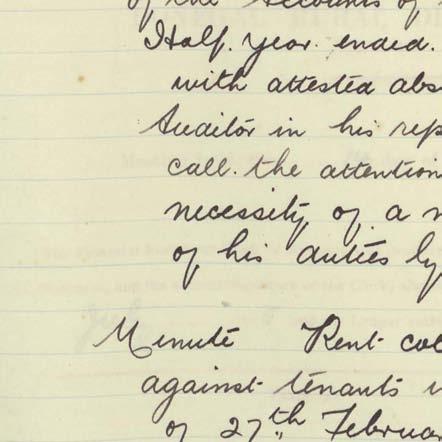 of the Accounts of
Half. year. ended.
with attested abs
Auditor in his rep
call. the attention
necessity of a
of his duties by
Minute Rent col
against tenants
of 27th Februar